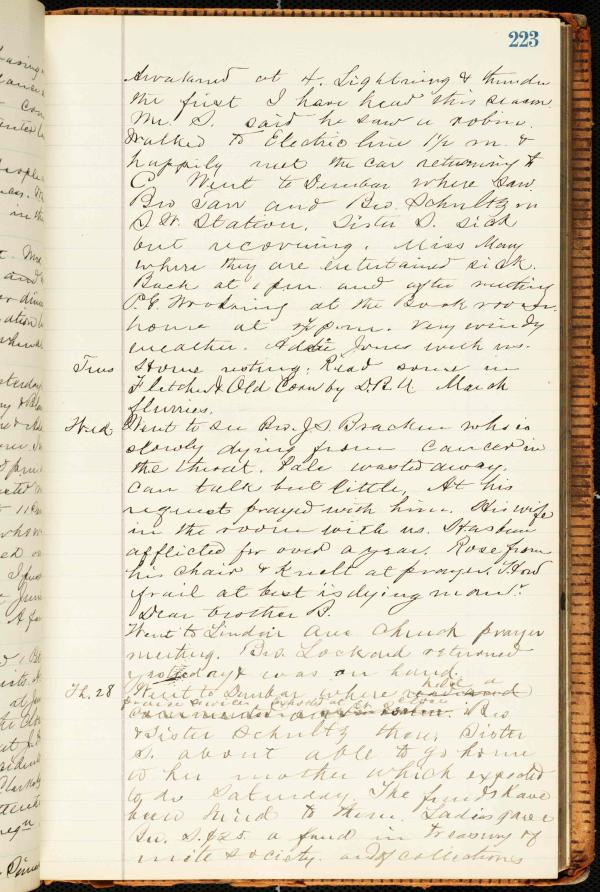 223
Awakened at 4. Lightning & thunder
the first I have heard this season.
Mr. S. said he saw a robin.
Walked to Electric line 1½ m. &
happily met the car returning to
C. Went to Dunbar where saw
Bro Tarr and Bro. Schultz in
S. W. Station. Sister S. sick
but recovering. Miss Mary
where they are entertained sick.
Back at 1 pm. and after meeting
P. E. at the Book room
home at p.m. Very windy
weather. Addie Jones with us.
Tues Home resting. Read some in
Fletcher & Old Corn by D.B.U March
flurries.
Wed. Went to see Bro. J S Bracken who is
slowly dying from cancer in
the throat. Pale wasted away.
Can talk but little, At his
request prayed with him. His wife
in the room with us. Has been
afflicted for over a year. Rose from
his chair & knelt at prayer. "How
frail at best is dying man."
Dear brother B.
Went to Linden Ave Church prayer
meeting. Bro. Lockard returned
yesterday & was on hand.
Th. 28 Went to Dunbar where held a
praise service
Bro
& Sister Schultz there, Sister
S. about able to go home
to her mother which expected
to do Saturday. The funds have
been kind to them. Ladies gave
Sr. S. $25. a fund in treasury of
mite society. and of collections